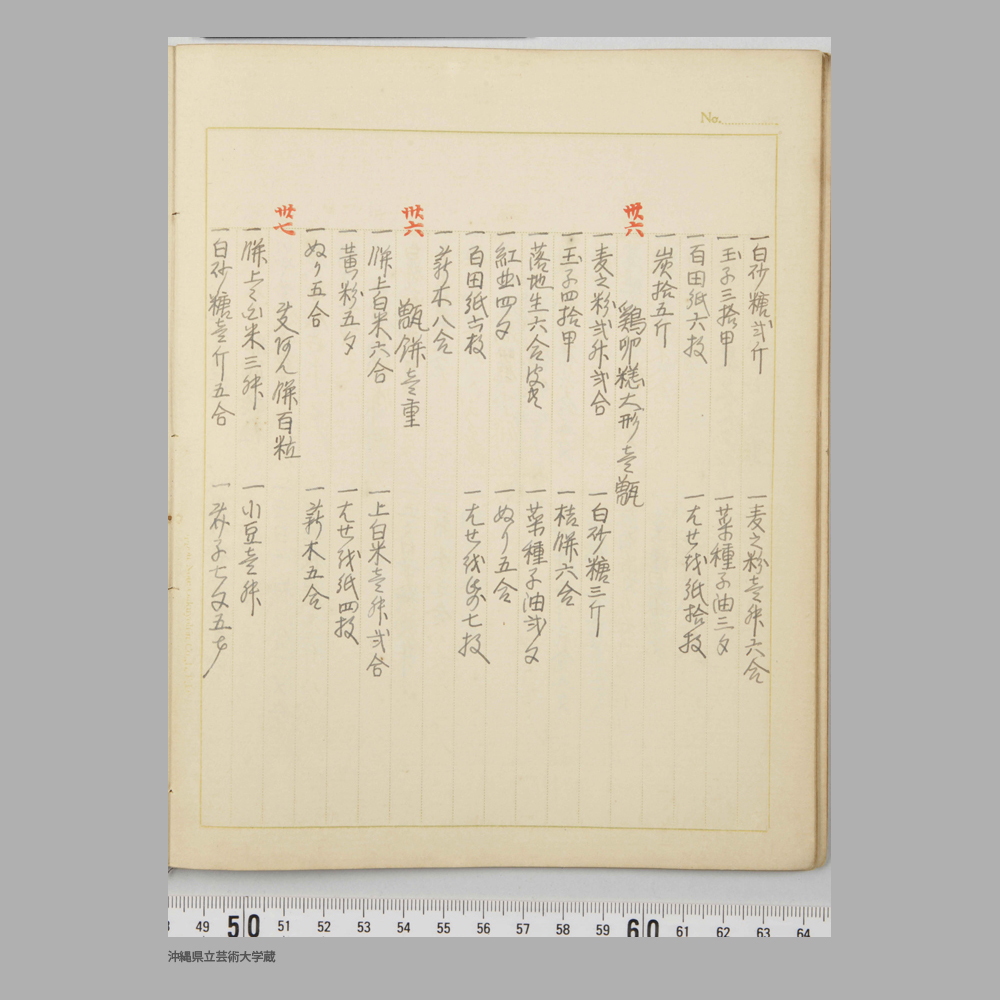 No.
一白砂糖弐斤 一麦之粉壱舛六合
一玉子三拾甲 一菜種子油三夕
一百田紙六枚 一はせを紙拾枚
一炭拾五斤
卅六 鶏卵糕大形壱甑
一麦之粉弐舛弐合 一白砂糖三斤
一玉子四拾甲 一桔餅六合
一落地生六合 一菜種子油弐夕
一紅曲四夕 一ぬり五合
一百田紙六枚 一はせを紙七枚
一薪木八合
卅六 甑餅壱重
一餅上白米六合 一上白米壱舛弐合
一黄粉五夕 一はせを紙四枚
一ぬり五合 一薪木五合
卅七 餅百粒
一餅上白米三舛 一小豆壱舛
一白砂糖壱斤五合 一子七夕五才
49 50 51 52 53 54 55 56 57 58 59 60 61 62 63 64
沖縄県立芸術大学蔵